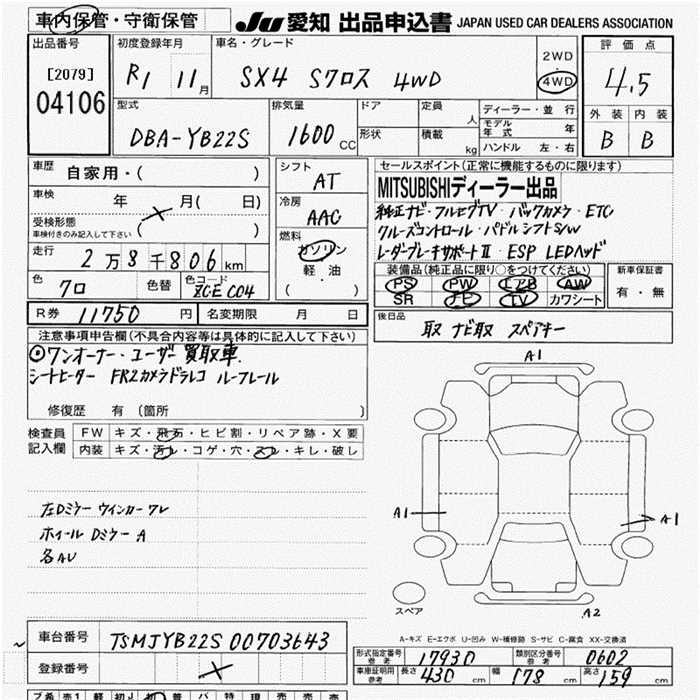 車内保管・守衛保管
JU 愛知 出品申込書 JAPAN USED CAR DEALERS ASSOCIATION
出品番号
[2079]
04106
初度登録年月
R1 11月
車名・グレード
SX4 Sクロス 4WD
2WD
・
4WD
評価点
4.5
外装 内装
B B
型式
DBA-YB22S
排気量
1600 CC
ドア
形状
定員 人
積載 kg
ディーラー・並行
モデル年式 年
ハンドル 左・右
車歴
自家用・( )
車検
年 月( 日)
受検形態
車検付きのみ記入して下さい ( )
走行
2万8千806km
色
クロ
色替
色コード
ZCE C04
シフト
AT
冷房
AAC
燃料
ガソリン
軽・油
( )
セールスポイント(正常に機能するものに限ります)
MITSUBISHIディーラー出品
純正ナビ・フルセグTV・バックカメラ・ETC
クルーズコントロール・パドルシフトS/W
レーダーブレーキサポートⅡ・ESP LEDヘッド
装備品(純正品に限り○をつけてください)
PS PW エアB AW
SR ナビ TV カワシート
新車保証書
有・無
R券 11750 円
名変期限 月 日
後日品
取 ナビ取 スペアキー
注意事項申告欄(不具合内容等は具体的に記入して下さい)
◎ワンオーナー・ユーザー買取車
シートヒーター FR2カメラドラレコ ルーフレール
修復歴 有 (箇所 )
検査員
記入欄
FW キズ・飛石・ヒビ割・リペア跡・X要
内装 キズ・汚レ・コゲ・穴・スレ・キレ・破レ
左Dミラー ウインカーワレ
ホイール Dミラー A
各AU
A1
A1
A1
A2
スペア
A-キズ E-エクボ U-凹み W-補修跡 S-サビ C-腐食 XX-交換済
車台番号 TSMJYB22S 00703643
登録番号
形式指定番号 参考 17930
類別区分番号 参考 0602
車庫証明用 参考 長さ 430 cm 幅 178 cm 高さ 159 cm